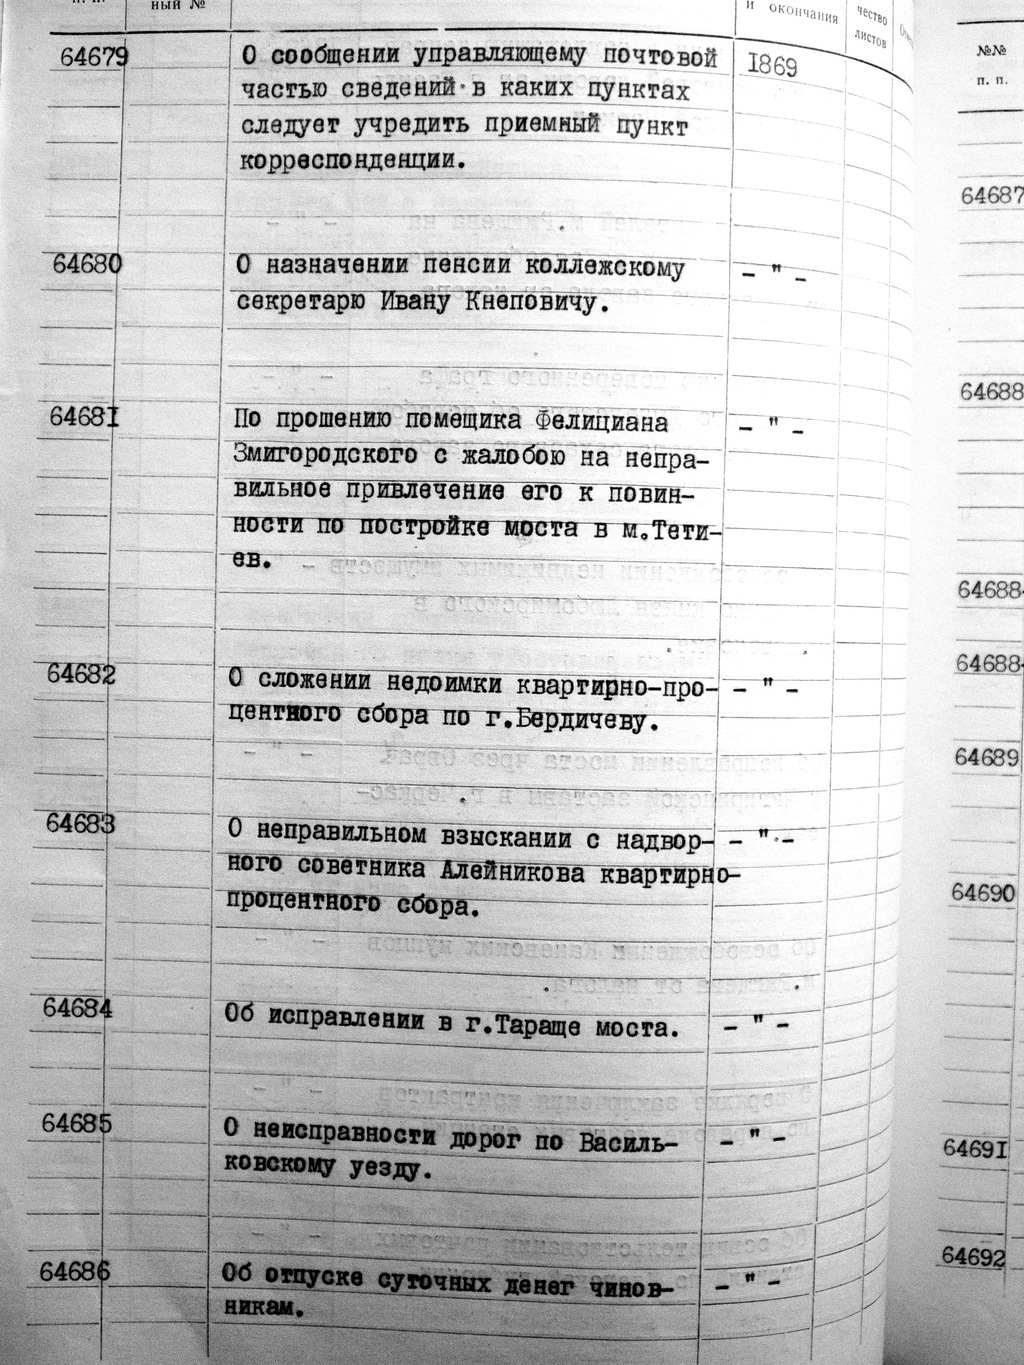 п. п.
ный №
и окончания
чество
листов
64679
О сообщении управляющему почтовой
1869
частью сведений в каких пунктах
следует учредить приемный пункт
корреспонденции.
64680
О назначении пенсии коллежскому
- " -
секретарю Ивану Кнеповичу.
64681
По прошению помещика Фелициана
- " -
Змигородского с жалобою на непра-
вильное привлечение его к повин-
ности по постройке моста в м.Тети-
ев.
64682
О сложении недоимки квартирно-про-
- " -
центного сбора по г.Бердичеву.
64683
О неправильном взыскании с надвор-
- " -
ного советника Алейникова квартирно-
процентного сбора.
64684
Об исправлении в г.Тараще моста.
- " -
64685
О неисправности дорог по Василь-
- " -
ковскому уезду.
64686
Об отпуске суточных денег чинов-
- " -
никам.
№№
п. п.
64687
64688
64688
64688
64689
64690
64691
64692